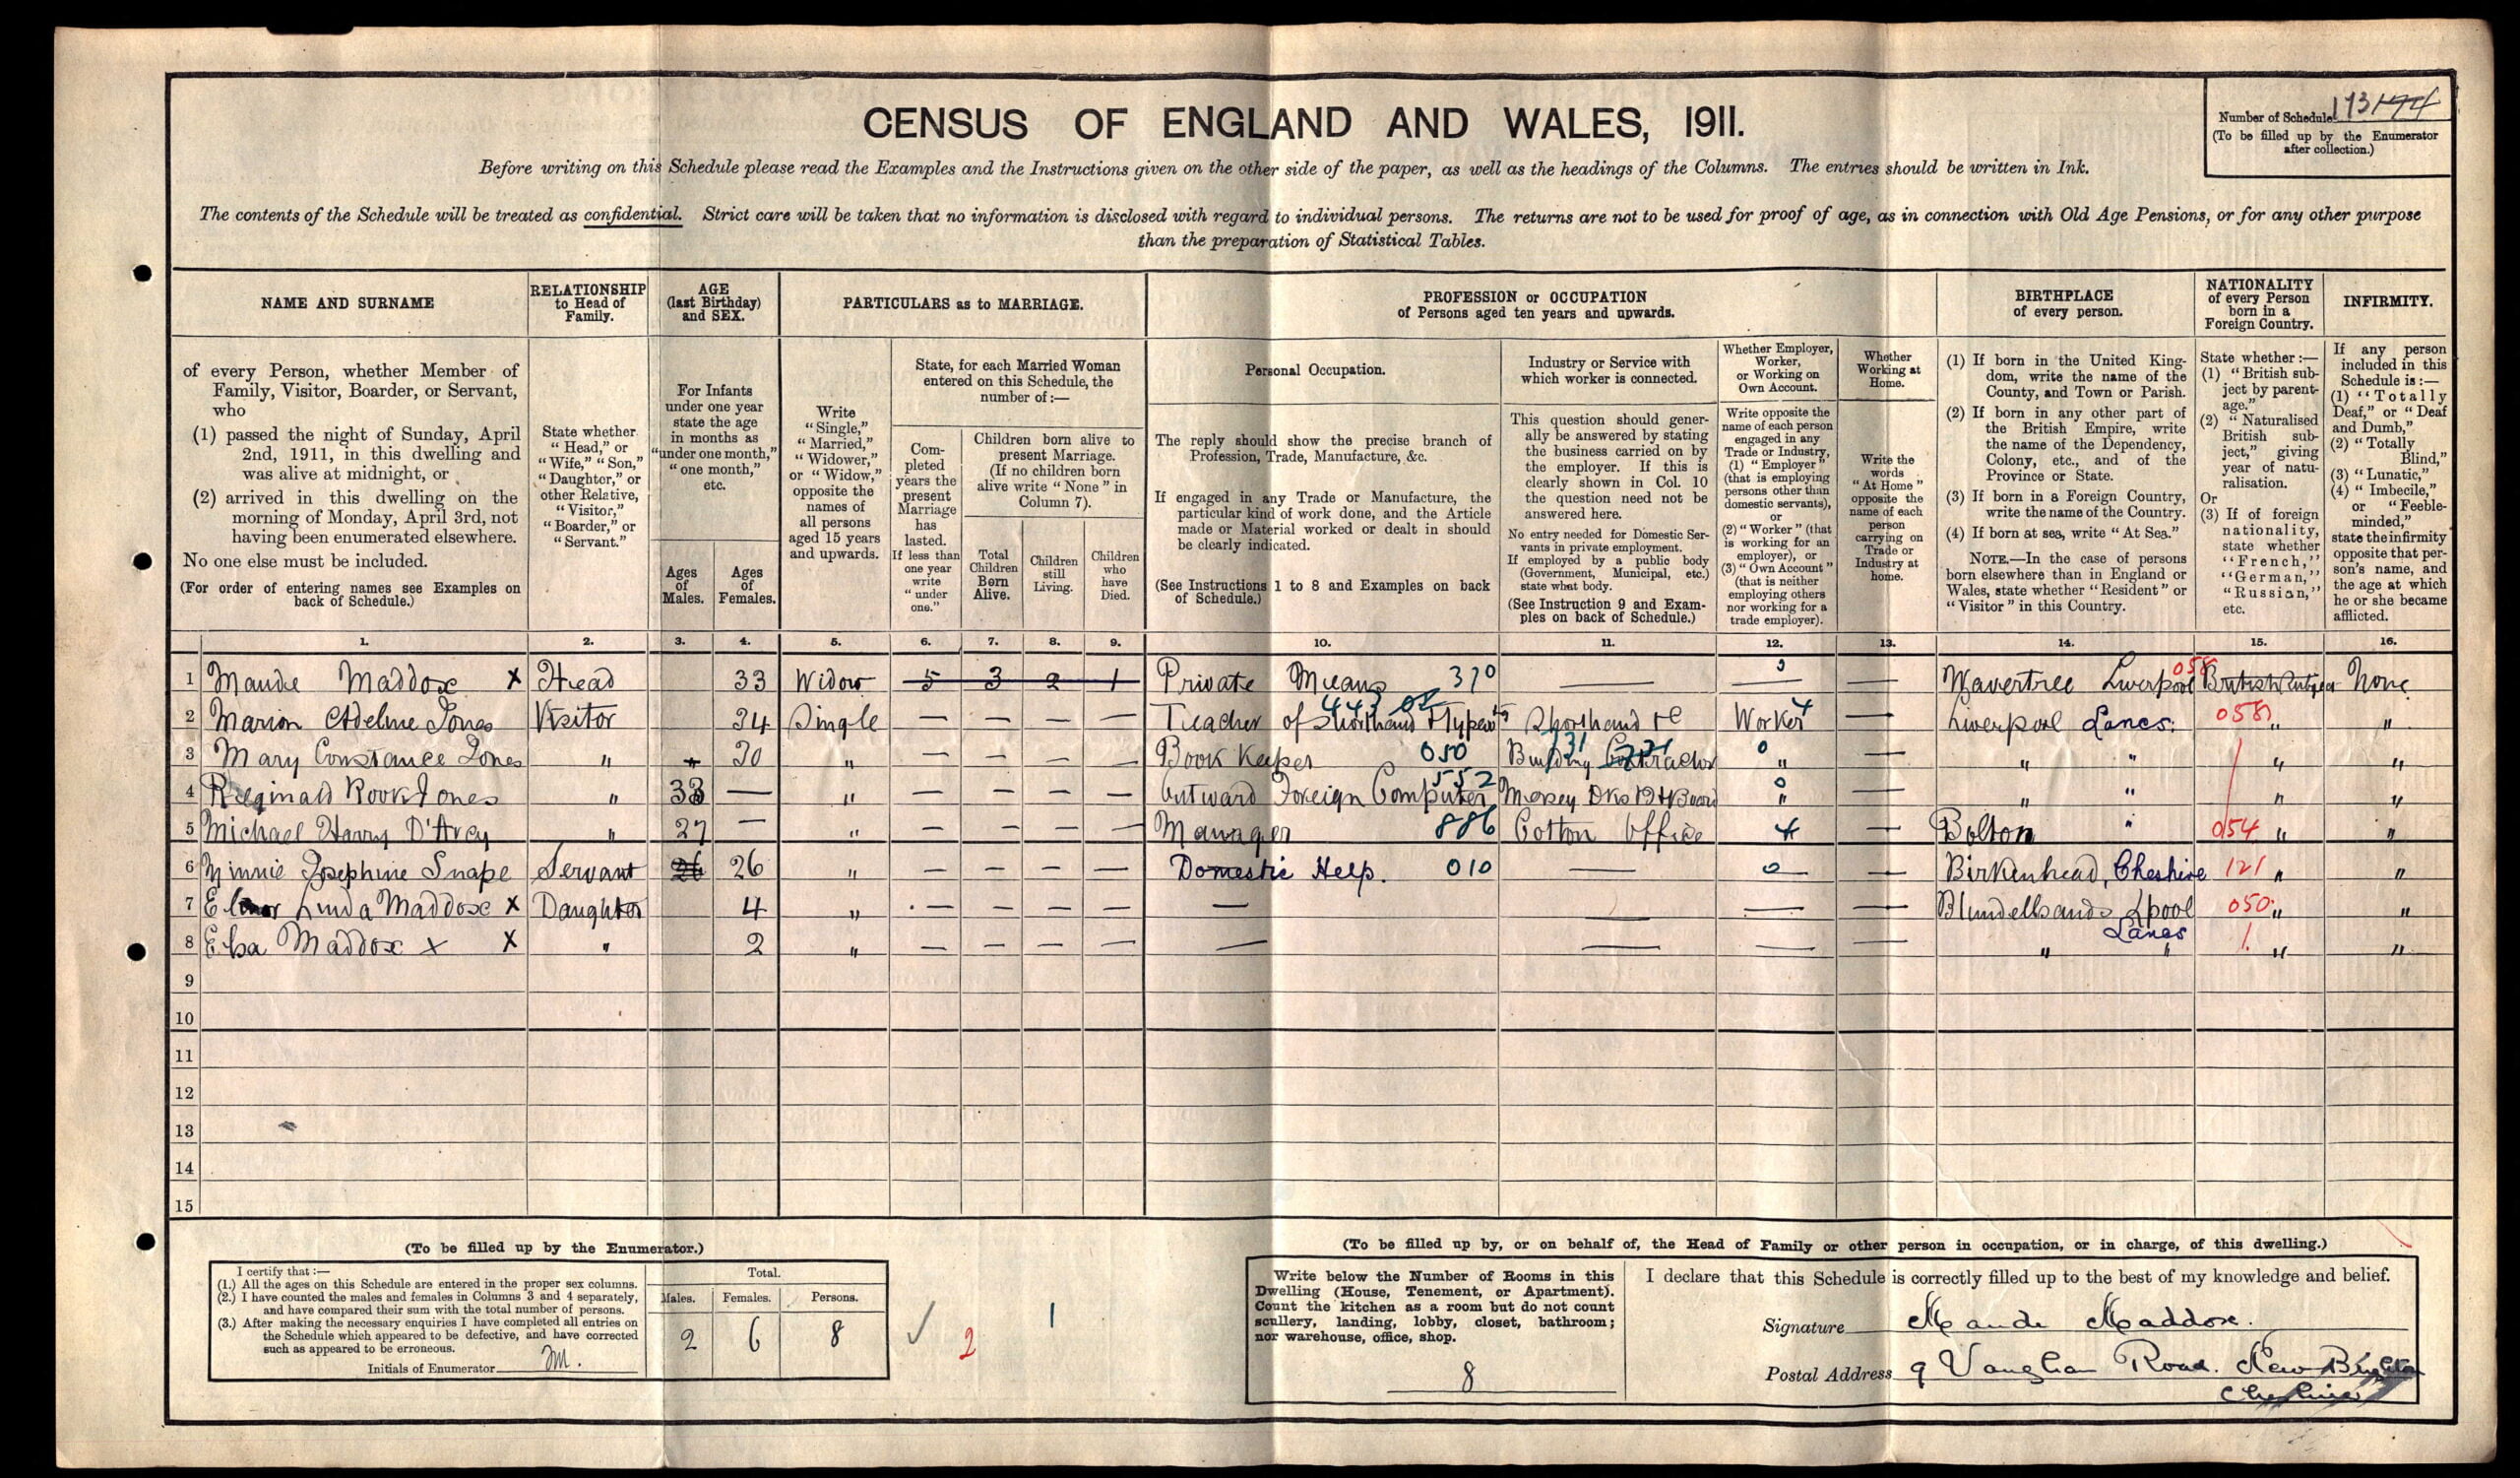 CENSUS OF ENGLAND AND WALES, 1911.
Number of Schedule 173 174
(To be filled up by the Enumerator
after collection.)
Before writing on this Schedule please read the Examples and the Instructions given on the other side of the paper, as well as the headings of the Columns. The entries should be written in Ink.
The contents of the Schedule will be treated as confidential. Strict care will be taken that no information is disclosed with regard to individual persons. The returns are not to be used for proof of age, as in connection with Old Age Pensions, or for any other purpose
than the preparation of Statistical Tables.
NAME AND SURNAME
of every Person, whether Member of
Family, Visitor, Boarder, or Servant,
who
(1) passed the night of Sunday, April
2nd, 1911, in this dwelling and
was alive at midnight, or
(2) arrived in this dwelling on the
morning of Monday, April 3rd, not
having been enumerated elsewhere.
No one else must be included.
(For order of entering names see Examples on
back of Schedule.)
RELATIONSHIP
to Head of
Family.
State whether
"Head," or
"Wife," "Son,"
"Daughter," or
other Relative,
"Visitor,"
"Boarder," or
"Servant."
AGE
(last Birthday)
and SEX.
For Infants
under one year
state the age
in months as
"under one month,"
"one month,"
etc.
Ages
of
Males.
Ages
of
Females.
PARTICULARS as to MARRIAGE.
Write
"Single,"
"Married,"
"Widower,"
or "Widow,"
opposite the
names of
all persons
aged 15 years
and upwards.
State, for each Married Woman
entered on this Schedule, the
number of:—
Com-
pleted
years the
present
Marriage
has
lasted.
If less than
one year
write
"under
one."
Children born alive to
present Marriage.
(If no children born
alive write "None" in
Column 7).
Total
Children
Born
Alive.
Children
still
Living.
Children
who
have
Died.
PROFESSION or OCCUPATION
of Persons aged ten years and upwards.
Personal Occupation.
The reply should show the precise branch of
Profession, Trade, Manufacture, &c.
If engaged in any Trade or Manufacture, the
particular kind of work done, and the Article
made or Material worked or dealt in should
be clearly indicated.
(See Instructions 1 to 8 and Examples on back
of Schedule.)
Industry or Service with
which worker is connected.
This question should gener-
ally be answered by stating
the business carried on by
the employer. If this is
clearly shown in Col. 10
the question need not be
answered here.
No entry needed for Domestic Ser-
vants in private employment.
If employed by a public body
(Government, Municipal, etc.)
state what body.
(See Instruction 9 and Exam-
ples on back of Schedule.)
Whether Employer,
Worker,
or Working on
Own Account.
Write opposite the
name of each person
engaged in any
Trade or Industry,
(1) "Employer"
(that is employing
persons other than
domestic servants),
or
(2) "Worker" (that
is working for an
employer), or
(3) "Own Account"
(that is neither
employing others
nor working for a
trade employer).
Whether
Working at
Home.
Write the
words
"At Home"
opposite the
name of each
person
carrying on
Trade or
Industry at
home.
BIRTHPLACE
of every person.
(1) If born in the United King-
dom, write the name of the
County, and Town or Parish.
(2) If born in any other part of
the British Empire, write
the name of the Dependency,
Colony, etc., and of the
Province or State.
(3) If born in a Foreign Country,
write the name of the Country.
(4) If born at sea, write "At Sea."
NOTE.—In the case of persons
born elsewhere than in England or
Wales, state whether "Resident" or
"Visitor" in this Country.
NATIONALITY
of every Person
born in a
Foreign Country.
State whether:—
(1) "British sub-
ject by parent-
age."
(2) "Naturalised
British sub-
ject," giving
year of natu-
ralisation.
Or
(3) If of foreign
nationality,
state whether
"French,"
"German,"
"Russian,"
etc.
INFIRMITY.
If any person
included in this
Schedule is:—
(1) "Totally
Deaf," or "Deaf
and Dumb,"
(2) "Totally
Blind,"
(3) "Lunatic,"
(4) "Imbecile,"
or "Feeble-
minded,"
state the infirmity
opposite that per-
son's name, and
the age at which
he or she became
afflicted.
1. 2. 3. 4. 5. 6. 7. 8. 9. 10. 11. 12. 13. 14. 15. 16.
1 Maude Maddox X Head 33 Widow 5 3 2 1 Private Means 370 — — Wavertree Liverpool 058 British Subject None
2 Marion Adeline Jones Visitor 34 Single — — — — Teacher of Shorthand & Typewtg 443 02 Shorthand &c Worker 4 — Liverpool Lancs. 058 " "
3 Mary Constance Jones " 30 " — — — — Book Keeper 050 Building Contractor 0 " — " " " "
4 Reginald Rook Jones " 33 — " — — — — Outward Foreign Computer 552 Mersey Dks & H Board 0 " — " " " "
5 Michael Harry D'Arcy " 27 — " — — — — Manager 886 Cotton Office 4 — Bolton " 054 " "
6 Minnie Josephine Snape Servant 26 26 " — — — — Domestic Help. 010 — 0 — Birkenhead, Cheshire 121 " "
7 Elinor Linda Maddox X Daughter 4 " — — — — — — — — Blundellsands Lpool 050 " "
Lancs
8 Elsa Maddox X X " 2 " — — — — — — — — " " " "
9
10
11
12
13
14
15
(To be filled up by the Enumerator.)
I certify that:—
(1.) All the ages on this Schedule are entered in the proper sex columns.
(2.) I have counted the males and females in Columns 3 and 4 separately,
and have compared their sum with the total number of persons.
(3.) After making the necessary enquiries I have completed all entries on
the Schedule which appeared to be defective, and have corrected
such as appeared to be erroneous.
Initials of Enumerator M.
Total.
Males. Females. Persons.
2 6 8
2
1
(To be filled up by, or on behalf of, the Head of Family or other person in occupation, or in charge, of this dwelling.)
Write below the Number of Rooms in this
Dwelling (House, Tenement, or Apartment).
Count the kitchen as a room but do not count
scullery, landing, lobby, closet, bathroom;
nor warehouse, office, shop.
8
I declare that this Schedule is correctly filled up to the best of my knowledge and belief.
Signature Maude Maddox.
Postal Address 9 Vaughan Road. New Brighton
Cheshire